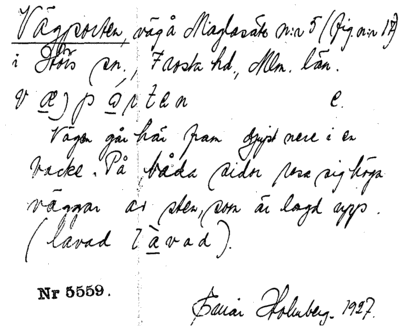 Vägporten, väg å Maglasäte n:r 5 (fig. n:r 17)
i Hörs sn., Frosta hd., Mlm. län.
væjpårten e.
Vägen går här fram djupt nere i en
backe. På båda sidor resa sig höga
väggar av sten, som är lagd upp.
(lavad làvad).
Nr 5559.
Einar Holmberg. 1927.